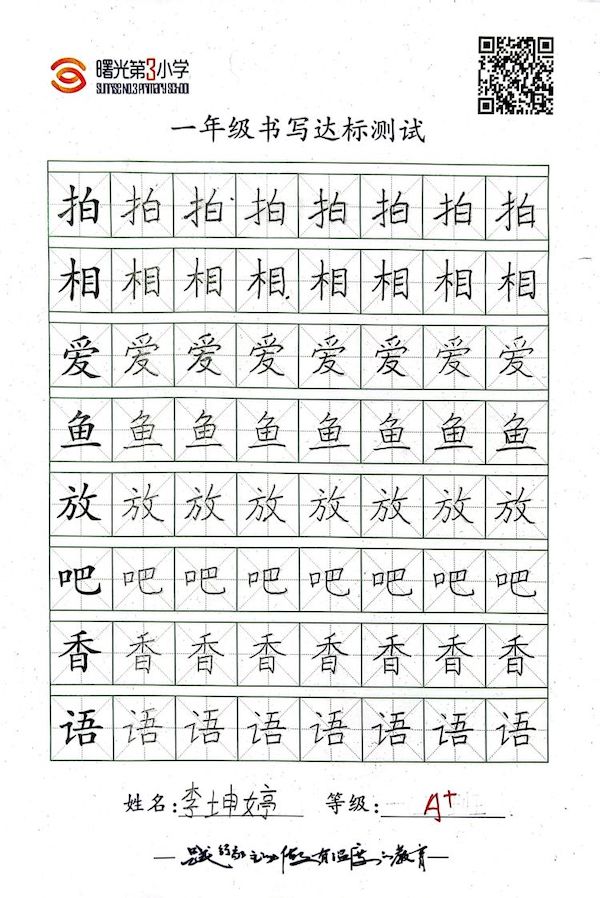 曙光第3小学
SUNRISE NO.3 PRIMARY SCHOOL
一年级书写达标测试
拍 拍 拍 拍 拍 拍 拍 拍
相 相 相 相 相 相 相 相
爱 爱 爱 爱 爱 爱 爱 爱
鱼 鱼 鱼 鱼 鱼 鱼 鱼 鱼
放 放 放 放 放 放 放 放
吧 吧 吧 吧 吧 吧 吧 吧
香 香 香 香 香 香 香 香
语 语 语 语 语 语 语 语
姓名:李坤婷 等级:A+
做有温度的教育